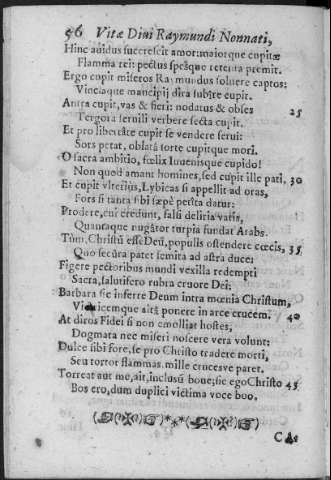 56 Vitæ Diui Raymundi Nonnati,
Hinc auidus succrescit amor: maiorque cupitæ
Flamma rei: pectus spesque retenta premit.
Ergo cupit miseros Raymundus soluere captos:
Vinclaque mancipij dira subire cupit.
Antra cupit, vas & fieri: nodatus & obses 25
Tergora seruili verbere secta cupit.
Et pro libertate cupit se vendere serui:
Sors petat, oblatâ torte cupitque mori.
O sacra ambitio, fœlix Iuuenisque cupido!
Non quod amant homines, sed cupit ille pati, 30
Et cupit vlterius, Lybicas si appellit ad oras,
Fors si tanta sibi sæpè petita datur:
Prodere, cui credunt, falsi deliria vatis,
Quantaque nugâtor turpia fundat Arabs.
Tùm, Christũ esse Deũ, populis ostendere cœcis, 35
Quo secura patet semita ad astra duce:
Figere pectoribus mundi vexilla redempti
Sacra, salutifero rubra cruore Dei:
Barbara sic inferre Deum intra mœnia Christum,
Vindicemque aitâ ponere in arce crucem. 40
At diros Fidei si non emolliat hostes,
Dogmata nec miseri noscere vera volunt:
Dulce sibi fore, se pro Christo tradere morti,
Seu tortor flammas, mille crucesve paret.
Torreat aut me, ait, inclusũ boue; sic ego Christo 45
Bos ero, dum duplici victima voce boo.